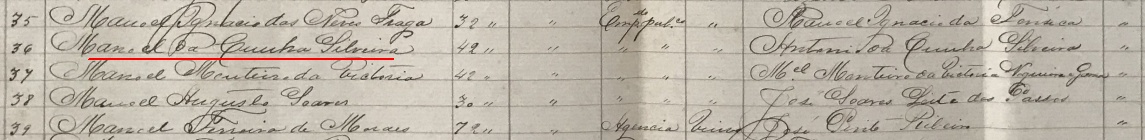 35 Manoel Ignacio das Neves Fraga 32 " Emp.do publ.co " Manoel Ignacio da Fonseca "
36 Manoel da Cunha Silveira 42 " " " " Antonio da Cunha Silveira "
37 Manoel Monteiro da Victoria 42 " " " " M.el Monteiro da Victoria "
38 Manoel Augusto Soares 30 " " " " José Soares Luta dos Passos "
39 Manoel Ferreira de Moraes 72 " Agencia " José Pinto Ribeiro "